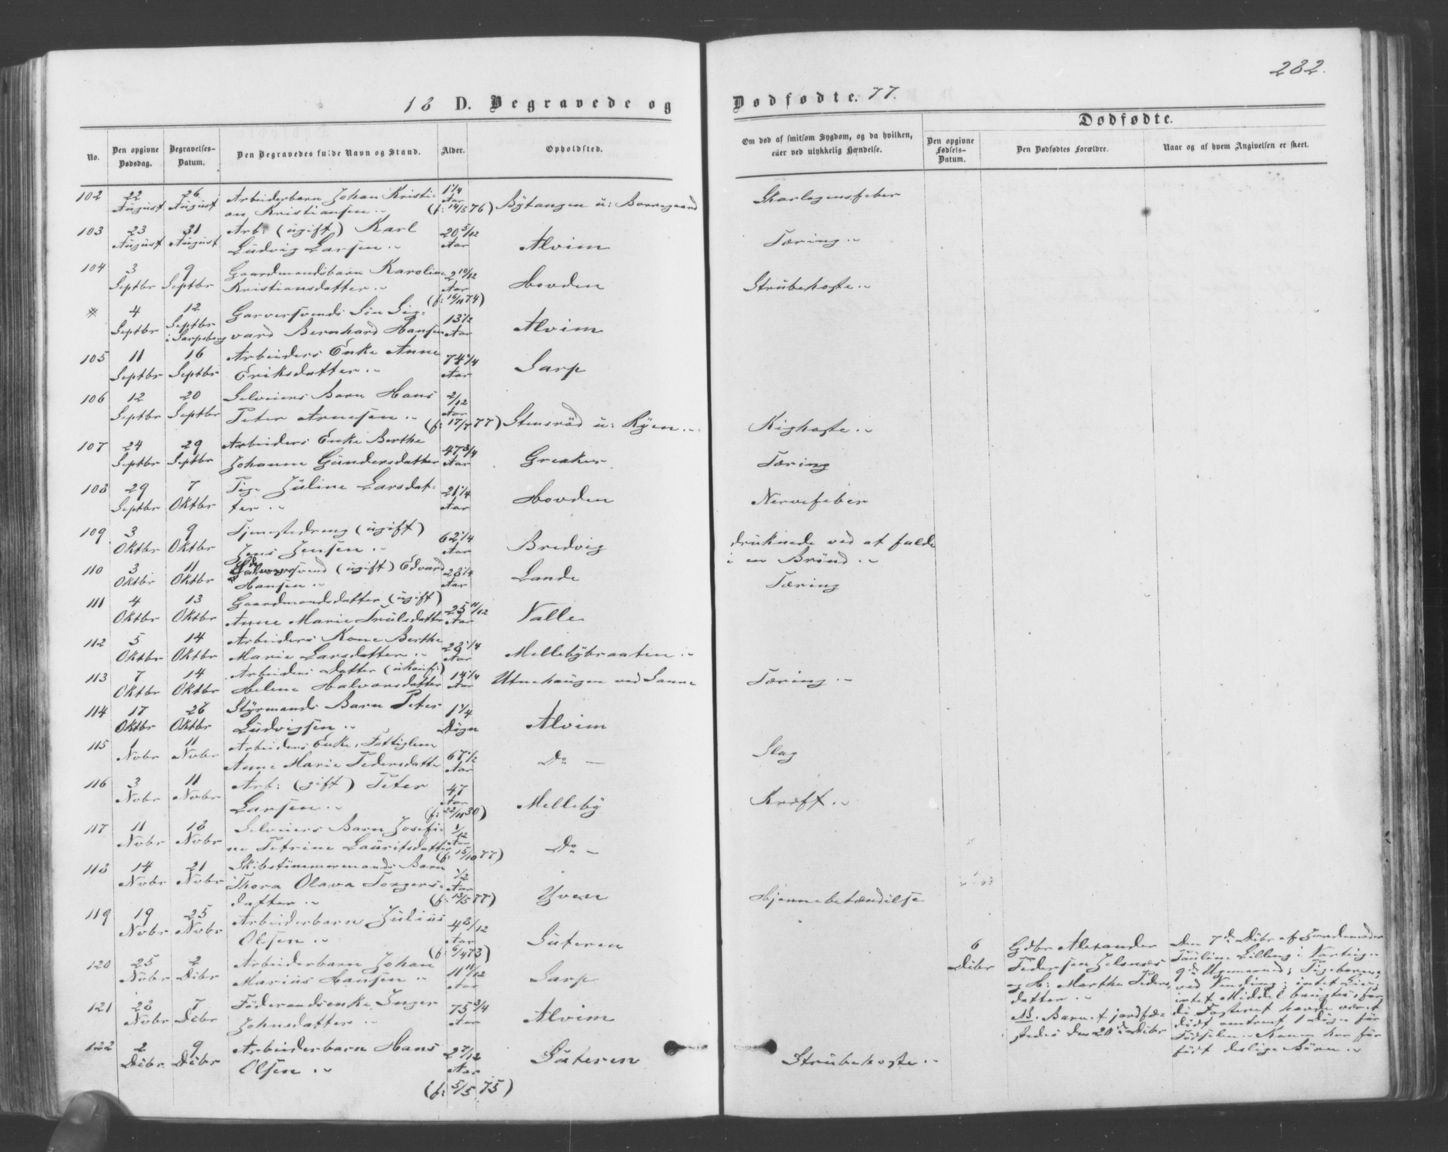 282.
18 D. Begravede og Dødfødte. 77.
No.
Den opgivne Dødsdag.
Begravelses-Datum.
Den Begravedes fulde Navn og Stand.
Alder.
Opholdsted.
Om død af smitsom Sygdom, og da hvilken, eller ved ulykkelig Hændelse.
Dødfødte.
Den opgivne Fødsels-Datum.
Den Dødfødtes Forældre.
Naar og af hvem Angivelsen er skeet.
102 22 August 26 August Arbeiderbarn Johan Kristian Kristiansen 1 1/4 Aar (f: 14/5 76) Bytangen u: Borregaard Skarlagensfeber
103 23 August 31 August Arb. (ugift) Karl Ludvig Larsen 20 5/12 Aar Alvim Tæring
104 3 Septbr 9 Septbr Gaardmandsbarn Karoline Kristiansdatter 2 10/12 Aar Hovden Strubehoste
* 4 Septbr 12 Septbr i Sarpsborg Garversvends Søn Sigvard Bernhard Hansen 13 1/2 Aar Alvim
105 11 Septbr 16 Septbr Arbeiders Enke Anne Eriksdatter 74 1/4 Aar Sarp
106 12 Septbr 20 Septbr Selveiers Barn Hans Peter Arnesen 2/12 Aar (f: 17/7 77) Stensrød u: Ryen Kighoste
107 24 Septbr 29 Septbr Arbeiders Enke Berthe Johanne Gundersdatter 47 3/4 Aar Greaker Tæring
108 29 Septbr 7 Oktbr Pige Juline Larsdatter 21 1/4 Aar Hovden Nervefeber
109 3 Oktbr 9 Oktbr Tjenestedreng (ugift) Jens Jensen 62 1/4 Aar Bredvig druknede ved at falde i en Brønd
110 3 Oktbr 11 Oktbr (ugift) Edvard Hansen 23 1/4 Aar Lande Tæring
111 4 Oktbr 13 Oktbr Gaardmandsdatter (ugift) Anne Marie Truulsdatter 25 11/12 Aar Valle
112 5 Oktbr 14 Oktbr Arbeiders Kone Berthe Marie Larsdatter 28 1/4 Aar Mellebybraaten
113 7 Oktbr 14 Oktbr Arbeiders Datter (ukonf:) Helene Halvorsdatter 14 1/4 Aar Utnehaugen ved Sanne Tæring
114 17 Oktbr 26 Oktbr Styrmands Barn Peter Ludvigsen 1 1/4 Døgn Alvim
115 1 Novbr 11 Novbr Arbeiders Enke, Fattiglem Anne Marie Pedersdatter 67 1/2 Aar Do Slag
116 3 Novbr 11 Novbr Arb: (gift) Peter Larsen 47 Aar (f: 22/11 30) Melleby Kræft
117 11 Novbr 18 Novbr Selveiers Barn Josefine Petrine Lauritsdatter 1/12 Aar (f: 15/10 77) Do
118 14 Novbr 21 Novbr Skibstømmermands Barn Thora Olava Torgersdatter 1/2 Aar (f: 13/5 77) Yven Hjernebetændelse
119 19 Novbr 25 Novbr Arbeiderbarn Julius Olsen 4 8/12 Aar (f: 6/4 73) Gateren
120 25 Novbr 2 Debr Arbeiderbarn Johan Marius Hansen 11 11/12 Aar Sarp
121 28 Novbr 7 Debr Føderaadsenke Inger Johnsdatter 75 3/4 Aar Alvim
122 2 Debr 9 Debr Arbeiderbarn Hans Olsen 2 7/12 Aar (f: 5/5 75) Gateren Strubehoste
6 Debr
Gdbr Alexander Pedersen og H: Marthe Pedersdatter
NB. Barnet jordfæstedes den 20de Debr
Den 7de Debr af Jordemoder